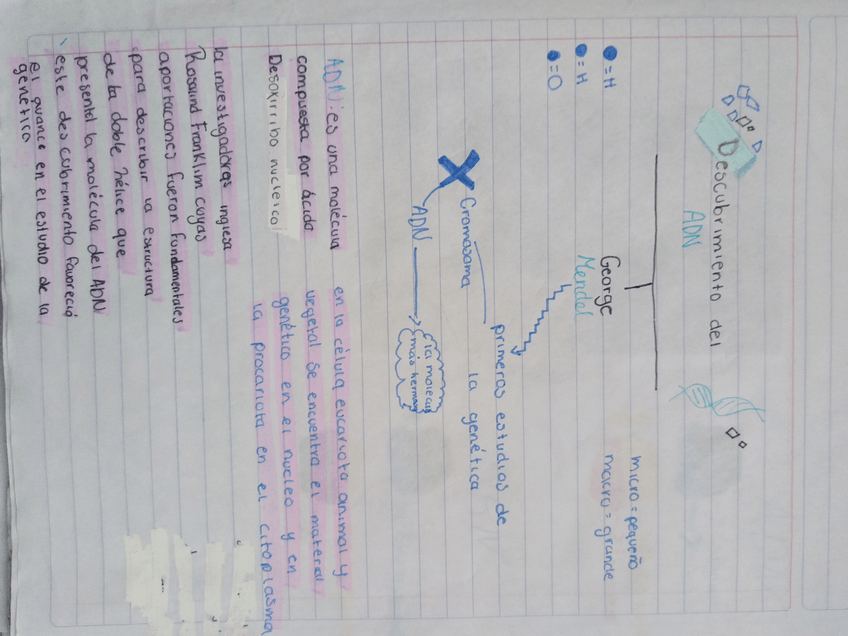 Descubrimiento del
ADN
George
Mendel
micro = pequeño
macro = grande
= H
= H
= O
primeros estudios de
la genética
Cromosoma
ADN
la molecula
más hermosa
ADN: es una molécula
compuesta por ácido
Desoxirribo nucleico
en la célula eucariota animal y
vegetal se encuentra el material
genético en el nucleo y en
la procariota en el citoplasma
la investigadoras inglesa
Rosaind Franklim cuyas
aportaciones fueron fundamentales
para describir la estructura
de la doble hélice que
presental la molécula del ADN
este descubrimiento favoreció
el avance en el estudio de la
genética